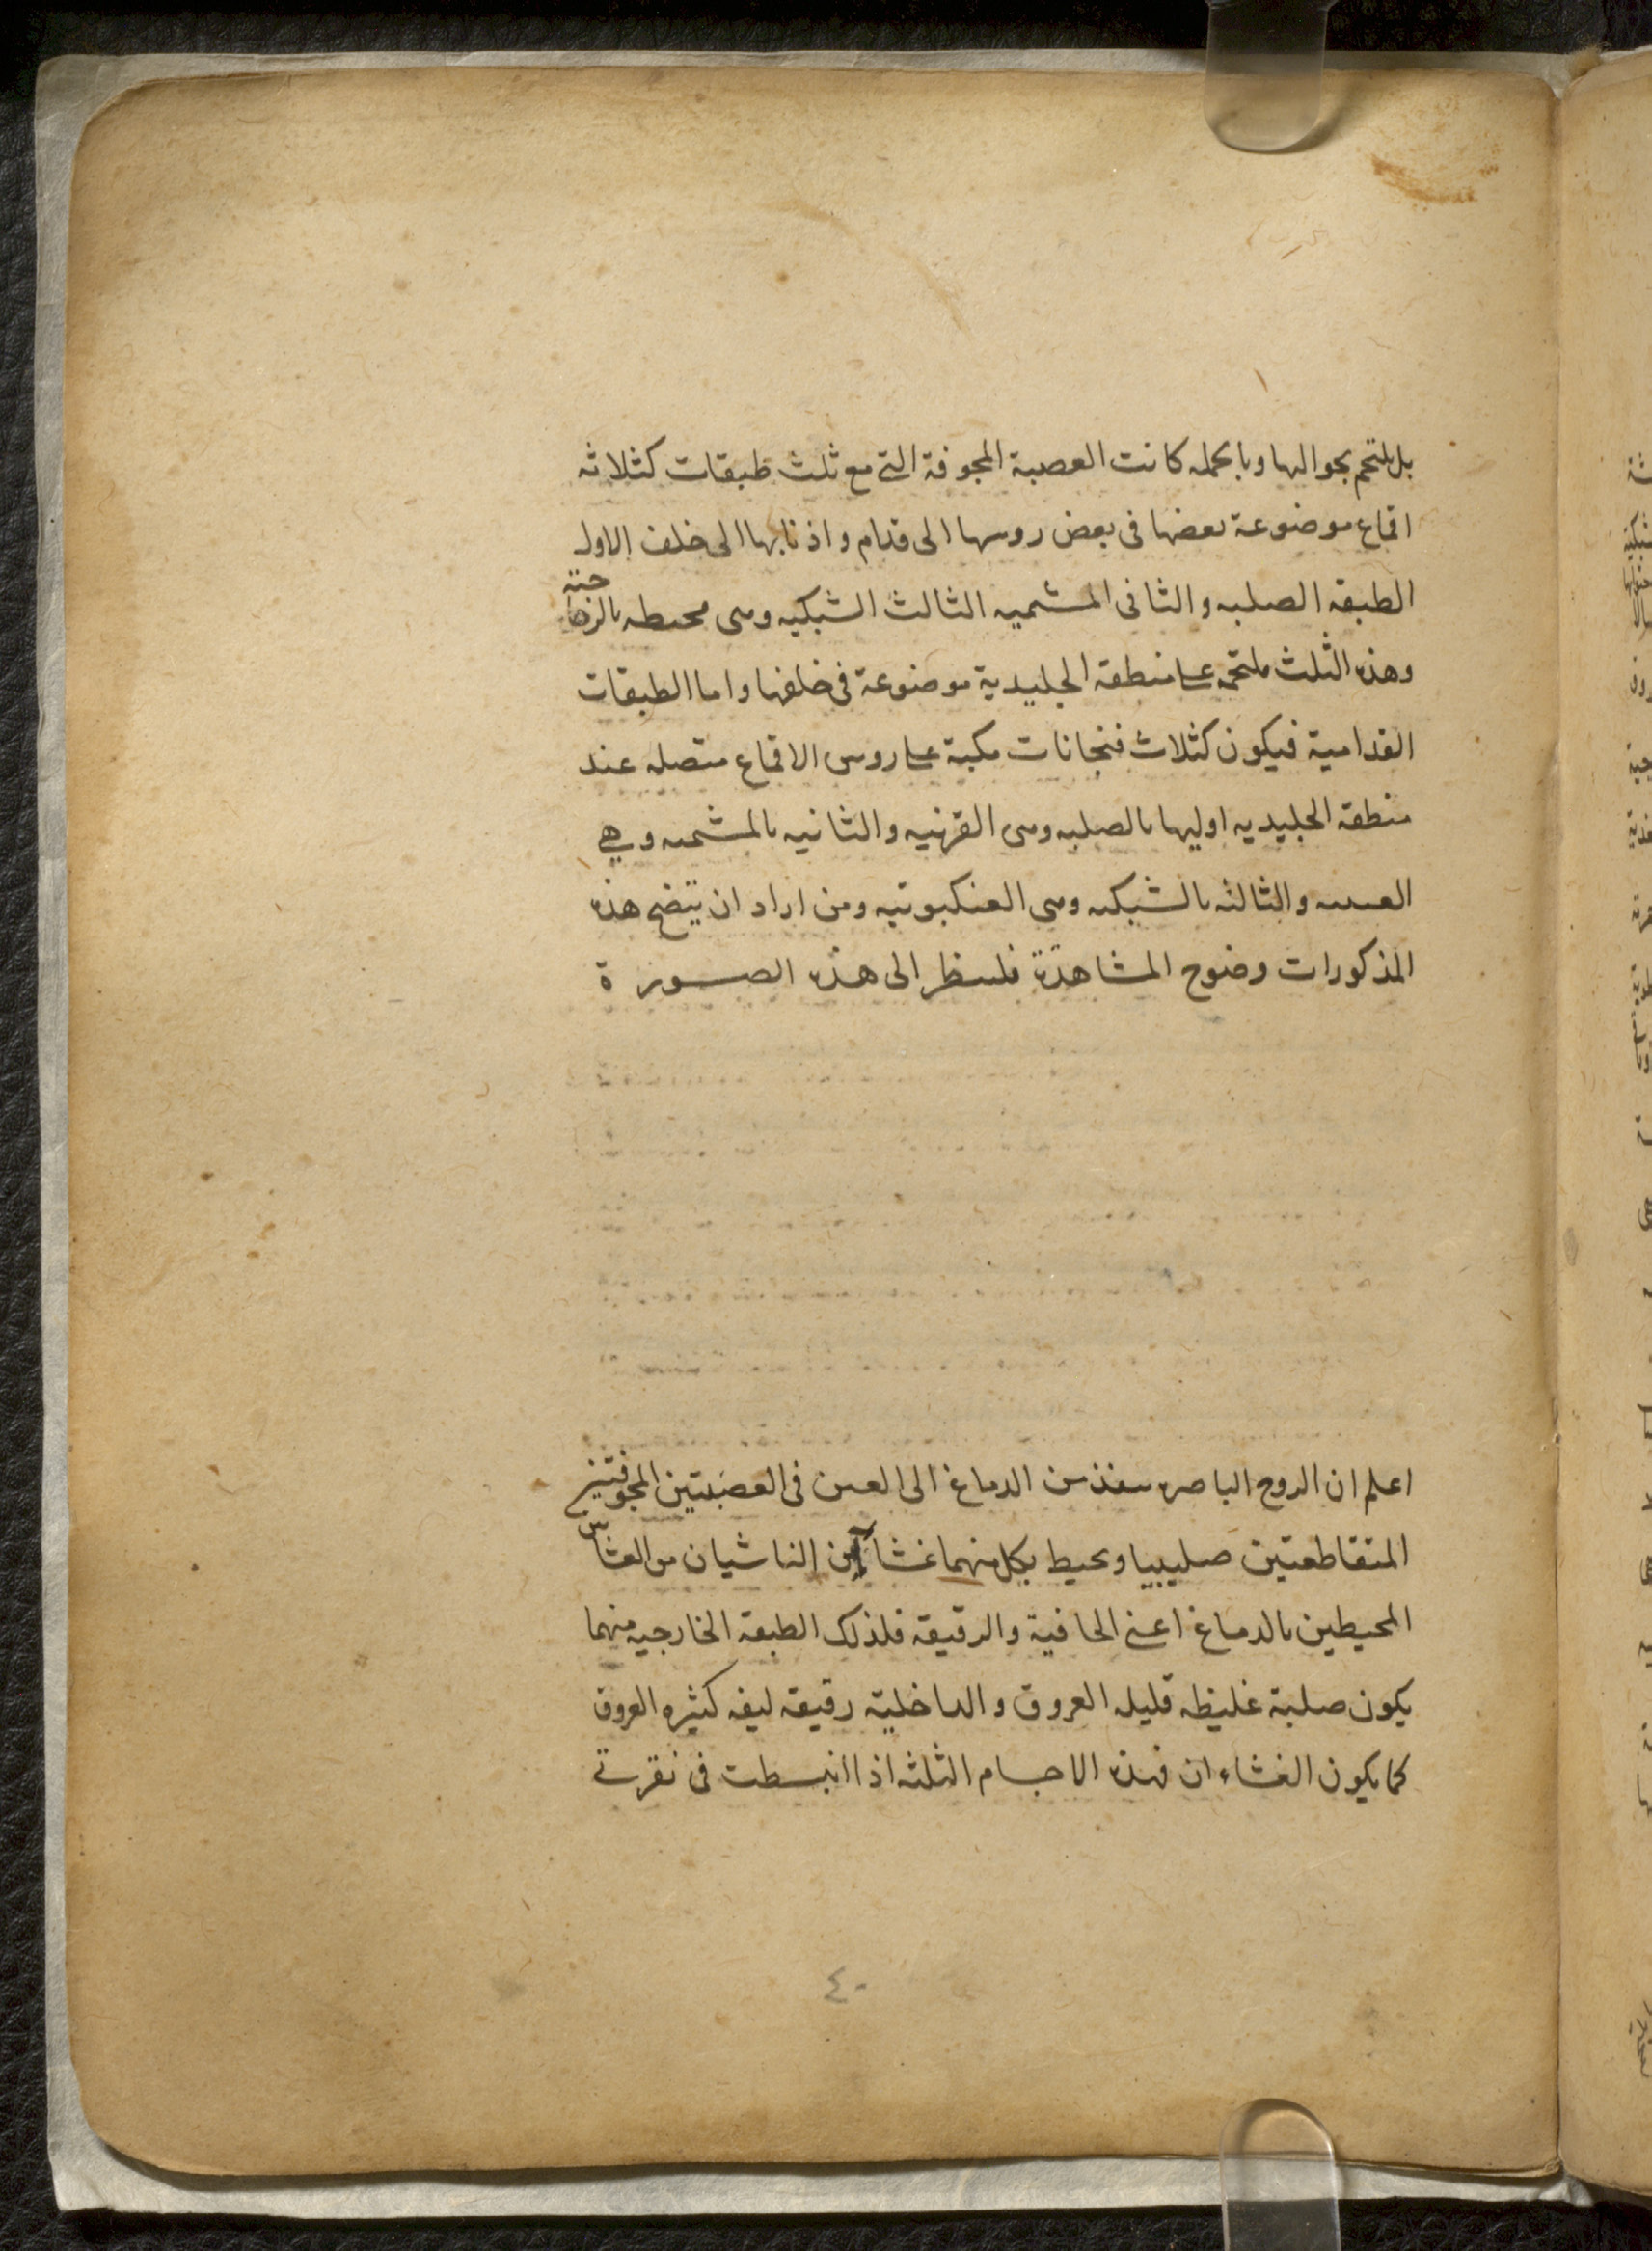 بل يلتحم بحواليها وبالجمله كانت العصبة المجوفة التى مع ثلث طبقات كثلاثه
اقماع موضوعة بعضها فى بعض روسها الى قدام واذنابها الى خلف الاول
الطبقه الصلبه والثانى المشميه الثالث الشبكيه وهى محيطه بالزجاجيته
وهذه الثلث ملتحمه على منطقة الجليدية موضوعة فى خلفها واما الطبقات
القدامية فيكون كثلاث فنجانات مكبة على روس الاقماع متصله عند
منطقة الجليديه اوليها بالصلبه وهى القرنيه والثانيه بالمشميه وهي
العنبيه والثالثه بالشبكيه وهى العنكبوتيه ومن اراد ان يتضح هذه
المذكورات وضوح المشاهدة فلينظر الى هذه الصورة
اعلم ان الروح الباصره ينفذ من الدماغ الى العين فى العصبتين المجوفتين
المتقاطعتين صليبيا ويحيط بكل منهما غشاآن الناشيان من الغشائين
المحيطين بالدماغ اعنى الجافية والرقيقة فلذلك الطبقه الخارجيه منهما
يكون صلبة غليظه قليله العروق والداخلية رقيقه ليفه كثيره العروق
كما يكون الغشاءان فهذه الاجسام الثلثه اذا انبسطت فى نقرتى
٤٠